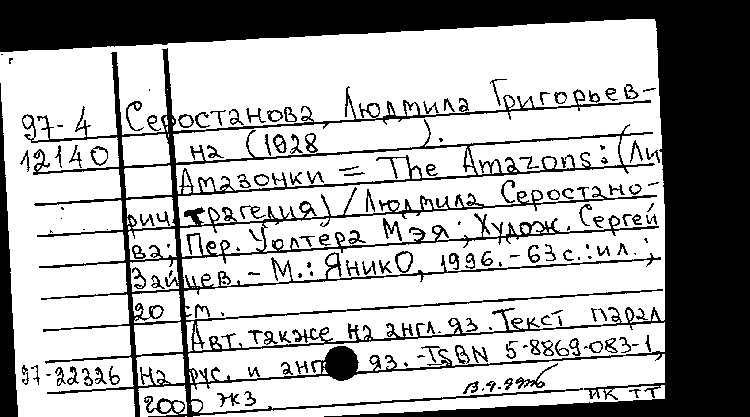 97-4 Серостанова, Людмила Григорьев-
12140 на (1928 ).
Амазонки = The Amazons: (Ли
рич. трагедия) / Людмила Серостано-
ва; Пер. Уолтера Мэя; Худож. Сергей
Зайцев. - М.: ЯникО, 1996. - 63 с.: ил.;
20 см.
Авт. также на англ. яз. Текст парал
97-22326 на рус. и англ яз. - ISBN 5-8869-083-1,
2000 экз.
ИК ТТ